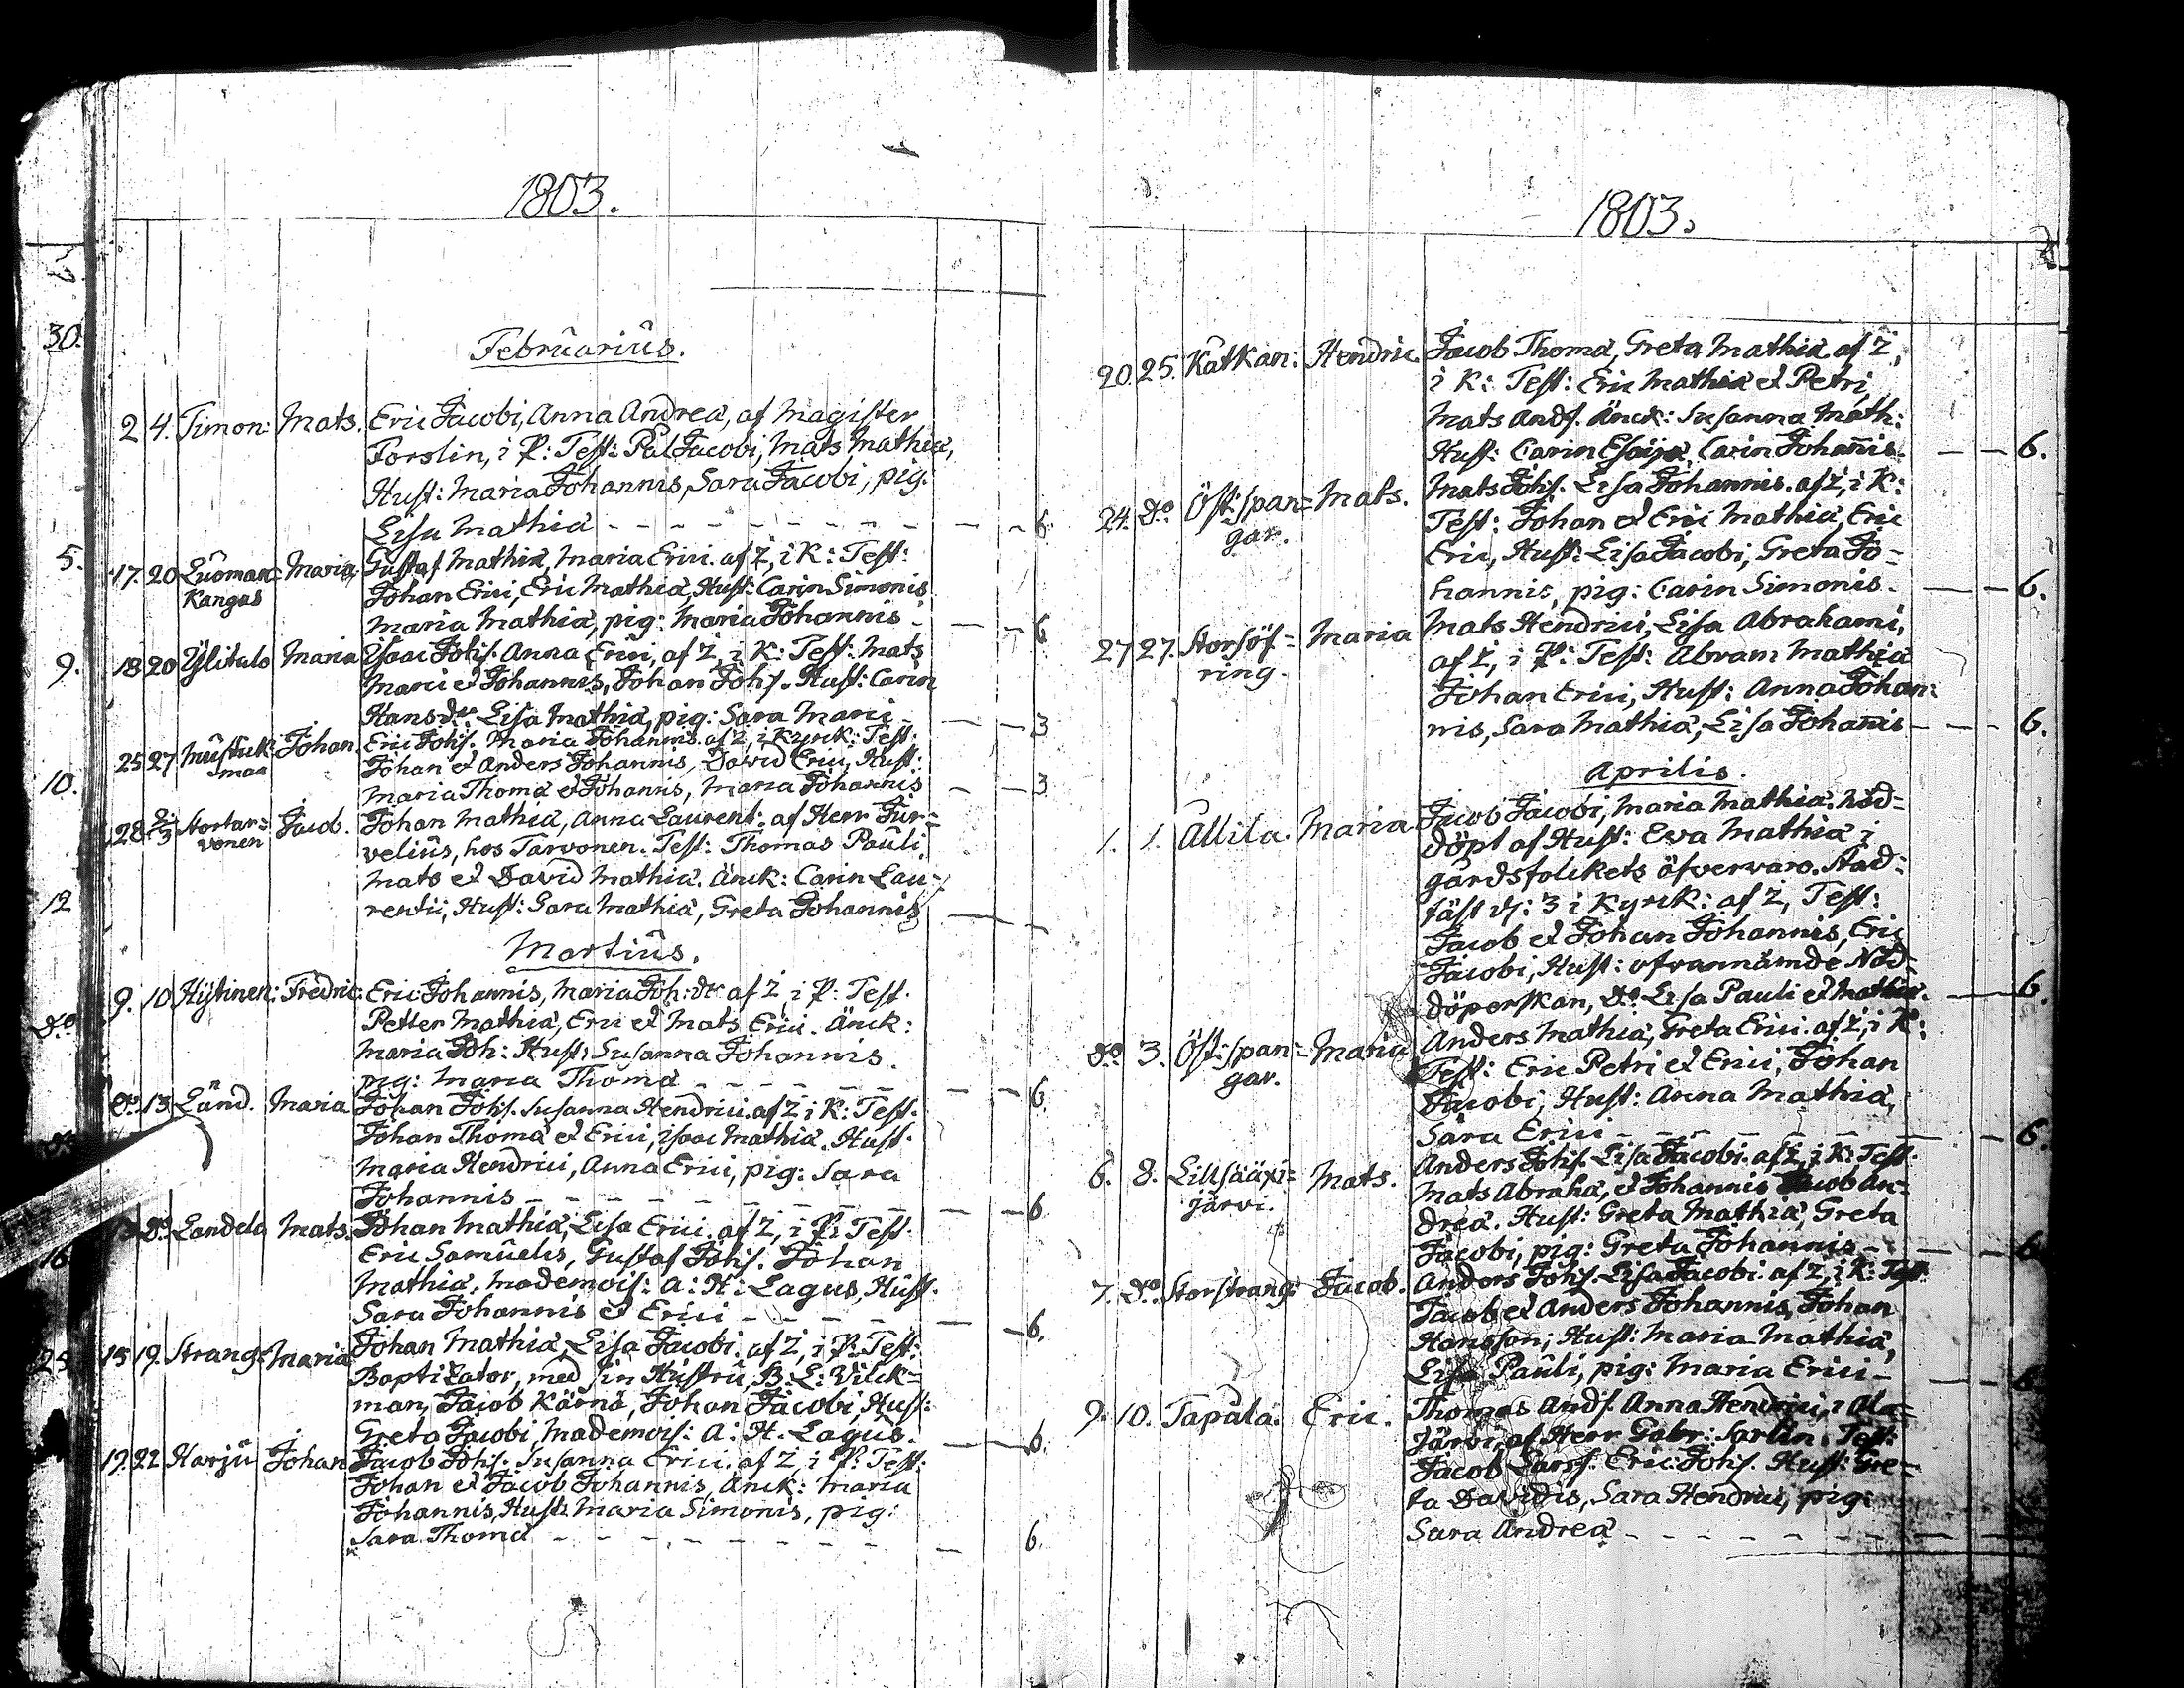 1803.
Februarius.
2 4. Timon: Mats. Eric Jacobi, Anna Andreä, af Magister
Forslin, i P: Test: Pål Jacobi, Mats Mathiä,
Hust: Maria Johannis, Sara Jacobi, pig:
Lisa Mathiä - - - 6.
17. 20 Luoman= Maria, Gustaf Mathiä, Maria Erici. af Z, i K: Test:
Kangas Johan Erici, Eric Mathiä, Hust: Carin Simonis
Maria Mathiä, pig: Maria Johannis - - - 6
18 20 Ylitalo Maria Isaac Johs. Anna Erici, af Z, i K: Test: Mats
Marci et Johannis, Johan Johs. Hust: Carin
Hansdr. Lisa Mathiä, pig: Sara Marci - - - 3
25 27 Mustuk= Johan. Eric Johs. Maria Johannis. af Z, i Kyrck: Test:
maa Johan et Anders Johannis, David Erici, Hust:
Maria Thomä et Johannis, Maria Johannis - - 3
28. 2/3 Stortar= Jacob. Johan Mathiä, Anna Laurent: af Herr Fur=
vonen velius, hos Tarvonen. Test: Thomas Pauli,
Mats et David Mathiä. Änck: Carin Lau=
rentii, Hust: Sara Mathiä, Greta Johannis - -
Martius.
9. 10 Hytinen: Fredric Eric Johannis, Maria Joh:dr af Z i P: Test.
Petter Mathiä, Eric et Mats Erici. Änck:
Maria Joh: Hust: Susanna Johannis.
pig: Maria Thomä - - - 6.
Do. 13 Lund. Maria Johan Johs. Susanna Hendrici. af Z i K: Test.
Johan Thomä et Erici, Isaac Mathiä. Hust.
Maria Hendrici, Anna Erici, pig: Sara
Johannis - - - 6
Do. Landela Mats. Johan Mathiä, Lisa Erici. af Z, i P: Test.
Eric Samuelis, Gustaf Johs. Johan
Mathiä, Mademois: A: H: Lagus, Hust.
Sara Johannis et Erici - - - 6.
15 19. Strang: Maria Johan Mathiä, Lisa Jacobi. af Z, i P: Test:
Baptizator, med sin Hustru, B: L: Vilck=
man, Jacob Kärnä, Johan Jacobi, Hust:
Greta Jacobi, Mademois: A: H. Lagus. - - 6.
19. 22 Harju Johan Jacob Johs. Susanna Erici. af Z, i P: Test:
Johan et Jacob Johannis, Änck: Maria
Johannis, Hust: Maria Simonis, pig:
Sara Thomä - - - 6.
30.
5.
9.
10.
12
Do.
16
25
1803.
20. 25. Kätkän: Hendric Jacob Thomä, Greta Mathiä af Z,
i K: Test: Eric Mathiä et Petri
Mats Ands. Änck: Susanna Math:
Hust: Carin Esaijä, Carin Johannis. - - 6.
24. Do. Öst:span= Mats. Mats Johs. Lisa Johannis. af Z, i K:
gar. Test: Johan et Eric Mathiä, Eric
Eric, Hust: Lisa Jacobi, Greta Jo=
hannis, pig: Carin Simonis. - - 6.
27 27. Storsöf= Maria Mats Hendrici, Lisa Abrahami,
ring. af Z, i P: Test: Abram Mathiä
Johan Erici, Hust: Anna Johan:
nis, Sara Mathiä, Lisa Johanis - - - 6.
Aprilis.
1. 1. Allila. Maria Jacob Jacobi, Maria Mathiä. Nöd=
döpt af Hust: Eva Mathiä i
gårdsfolckets öfvervaro. Stad=
fäst d: 3 i Kyrck: af Z, Test:
Jacob et Johan Johannis, Eric
Jacobi, Hust: ofvannämde Nöd=
döperskan, Do. Lisa Pauli et Mathiä. - 6.
Do 3. Öst:span= Maria Anders Mathiä, Greta Erici. af Z, i K:
gar. Test: Eric Petri et Erici, Johan
Jacobi, Hust: Anna Mathiä,
Sara Erici - - - 6.
6. 8. Lillsääxi= Mats. Anders Johs. Lisa Jacobi. af Z, i K: Test.
järvi. Mats Abrahä, et Johannis Jacob An=
dreä. Hust: Greta Mathiä, Greta
Jacobi, pig: Greta Johannis - - - 6
7. Do. Storstrang: Jacob. Anders Johs. Lisa Jacobi. af Z, i K: Test
Jacob et Anders Johannis, Johan
Hansson, Hust: Maria Mathiä,
Lisa Pauli, pig: Maria Erici - - 6
9. 10. Tapala. Eric. Thomas Ands. Anna Hendrici, i Ala=
järvi, af Herr Gabr: Sarlin. Test:
Jacob Larss. Eric Johs. Hust: Gre=
ta Davidis, Sara Hendrici, pig:
Sara Andreä - - -